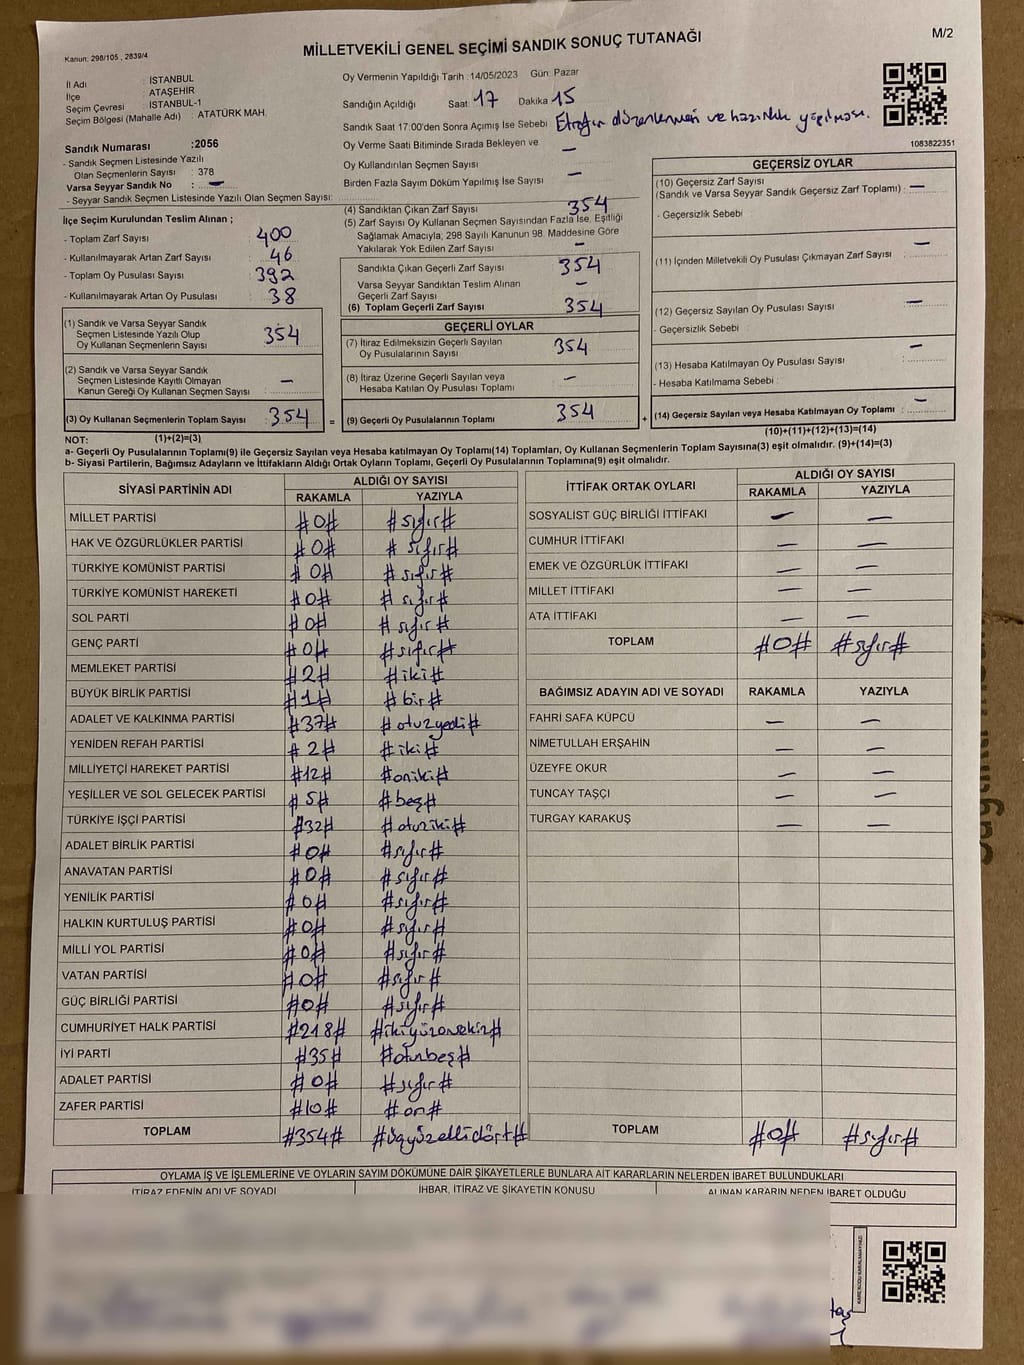 M/2
MİLLETVEKİLİ GENEL SEÇİMİ SANDIK SONUÇ TUTANAĞI
Kanun: 298/105 , 2839/4
İl Adı : İSTANBUL
İlçe : ATAŞEHİR
Seçim Çevresi : İSTANBUL-1
Seçim Bölgesi (Mahalle Adı) : ATATÜRK MAH.
Oy Vermenin Yapıldığı Tarih :14/05/2023 Gün: Pazar
Sandığın Açıldığı Saat: 17 Dakika 15
Sandık Saat 17:00'den Sonra Açımış İse Sebebi Etrafın düzenlenmesi ve hazırlık yapılması.
Oy Verme Saati Bitiminde Sırada Bekleyen ve
Oy Kullandırılan Seçmen Sayısı —
Birden Fazla Sayım Döküm Yapılmış İse Sayısı —
1083822351
Sandık Numarası :2056
- Sandık Seçmen Listesinde Yazılı
Olan Seçmenlerin Sayısı : 378
Varsa Seyyar Sandık No : —
- Seyyar Sandık Seçmen Listesinde Yazılı Olan Seçmen Sayısı:
İlçe Seçim Kurulundan Teslim Alınan ;
- Toplam Zarf Sayısı 400
- Kullanılmayarak Artan Zarf Sayısı 46
- Toplam Oy Pusulası Sayısı 392
- Kullanılmayarak Artan Oy Pusulası 38
(1) Sandık ve Varsa Seyyar Sandık
Seçmen Listesinde Yazılı Olup
Oy Kullanan Seçmenlerin Sayısı 354
(2) Sandık ve Varsa Seyyar Sandık
Seçmen Listesinde Kayıtlı Olmayan
Kanun Gereği Oy Kullanan Seçmen Sayısı —
(3) Oy Kullanan Seçmenlerin Toplam Sayısı 354 =
(4) Sandıktan Çıkan Zarf Sayısı 354
(5) Zarf Sayısı Oy Kullanan Seçmen Sayısından Fazla İse, Eşitliği
Sağlamak Amacıyla; 298 Sayılı Kanunun 98. Maddesine Göre
Yakılarak Yok Edilen Zarf Sayısı —
Sandıkta Çıkan Geçerli Zarf Sayısı 354
Varsa Seyyar Sandıktan Teslim Alınan
Geçerli Zarf Sayısı —
(6) Toplam Geçerli Zarf Sayısı 354
GEÇERLİ OYLAR
(7) İtiraz Edilmeksizin Geçerli Sayılan
Oy Pusulalarının Sayısı 354
(8) İtiraz Üzerine Geçerli Sayılan veya
Hesaba Katılan Oy Pusulası Toplamı —
(9) Geçerli Oy Pusulalarının Toplamı 354 +
GEÇERSİZ OYLAR
(10) Geçersiz Zarf Sayısı
(Sandık ve Varsa Seyyar Sandık Geçersiz Zarf Toplamı) : —
- Geçersizlik Sebebi
(11) İçinden Milletvekili Oy Pusulası Çıkmayan Zarf Sayısı —
(12) Geçersiz Sayılan Oy Pusulası Sayısı —
- Geçersizlik Sebebi
(13) Hesaba Katılmayan Oy Pusulası Sayısı —
- Hesaba Katılmama Sebebi :
(14) Geçersiz Sayılan veya Hesaba Katılmayan Oy Toplamı : —
NOT: (1)+(2)=(3) (10)+(11)+(12)+(13)=(14)
a- Geçerli Oy Pusulalarının Toplamı(9) ile Geçersiz Sayılan veya Hesaba katılmayan Oy Toplamı(14) Toplamları, Oy Kullanan Seçmenlerin Toplam Sayısına(3) eşit olmalıdır. (9)+(14)=(3)
b- Siyasi Partilerin, Bağımsız Adayların ve İttifakların Aldığı Ortak Oyların Toplamı, Geçerli Oy Pusulalarının Toplamına(9) eşit olmalıdır.
SİYASİ PARTİNİN ADI ALDIĞI OY SAYISI
RAKAMLA YAZIYLA
MİLLET PARTİSİ #0# #sıfır#
HAK VE ÖZGÜRLÜKLER PARTİSİ #0# #sıfır#
TÜRKİYE KOMÜNİST PARTİSİ #0# #sıfır#
TÜRKİYE KOMÜNİST HAREKETİ #0# #sıfır#
SOL PARTİ #0# #sıfır#
GENÇ PARTİ #0# #sıfır#
MEMLEKET PARTİSİ #2# #iki#
BÜYÜK BİRLİK PARTİSİ #1# #bir#
ADALET VE KALKINMA PARTİSİ #37# #otuzyedi#
YENİDEN REFAH PARTİSİ #2# #iki#
MİLLİYETÇİ HAREKET PARTİSİ #12# #oniki#
YEŞİLLER VE SOL GELECEK PARTİSİ #5# #beş#
TÜRKİYE İŞÇİ PARTİSİ #32# #otuziki#
ADALET BİRLİK PARTİSİ #0# #sıfır#
ANAVATAN PARTİSİ #0# #sıfır#
YENİLİK PARTİSİ #0# #sıfır#
HALKIN KURTULUŞ PARTİSİ #0# #sıfır#
MİLLİ YOL PARTİSİ #0# #sıfır#
VATAN PARTİSİ #0# #sıfır#
GÜÇ BİRLİĞİ PARTİSİ #0# #sıfır#
CUMHURİYET HALK PARTİSİ #218# #ikiyüzonsekiz#
İYİ PARTİ #35# #otuzbeş#
ADALET PARTİSİ #0# #sıfır#
ZAFER PARTİSİ #10# #on#
TOPLAM #354# #üçyüzellidört#
İTTİFAK ORTAK OYLARI ALDIĞI OY SAYISI
RAKAMLA YAZIYLA
SOSYALİST GÜÇ BİRLİĞİ İTTİFAKI — —
CUMHUR İTTİFAKI — —
EMEK VE ÖZGÜRLÜK İTTİFAKI — —
MİLLET İTTİFAKI — —
ATA İTTİFAKI — —
TOPLAM #0# #sıfır#
BAĞIMSIZ ADAYIN ADI VE SOYADI RAKAMLA YAZIYLA
FAHRİ SAFA KÜPCÜ — —
NİMETULLAH ERŞAHİN — —
ÜZEYFE OKUR — —
TUNCAY TAŞÇI — —
TURGAY KARAKUŞ — —
TOPLAM #0# #sıfır#
OYLAMA İŞ VE İŞLEMLERİNE VE OYLARIN SAYIM DÖKÜMÜNE DAİR ŞİKAYETLERLE BUNLARA AİT KARARLARIN NELERDEN İBARET BULUNDUKLARI
İTİRAZ EDENİN ADI VE SOYADI İHBAR, İTİRAZ VE ŞİKAYETİN KONUSU ALINAN KARARIN NEDEN İBARET OLDUĞU